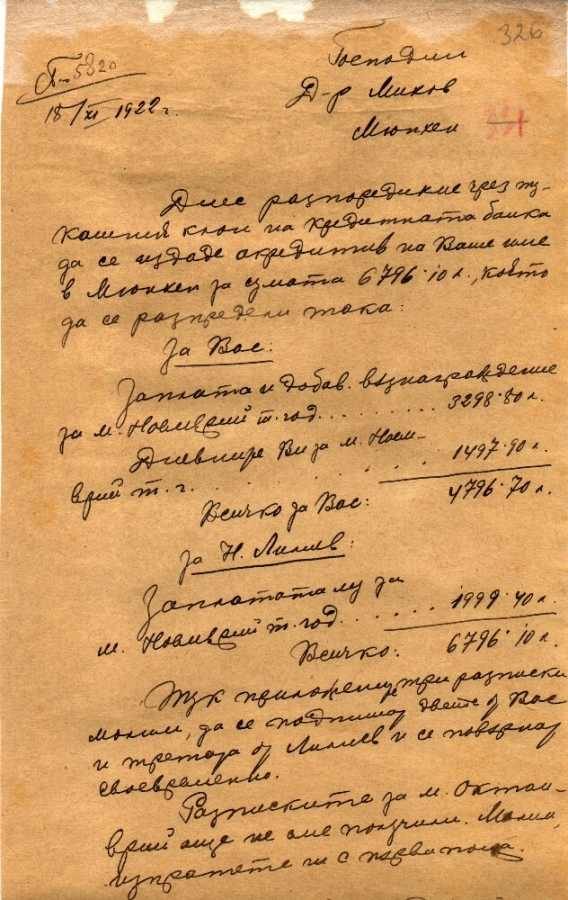 326
5820
18/XI 1922 г.
Господин
Д-р Миков
Мюнхен
Днес разпоредихме чрез тук-
кашний клон на Кредитната банка
да се издаде акредитив на Ваше име
в Мюнхен за сумата 6796·10 л., който
да се разпредели така:
За Вас:
Заплата и добав. възнаграждение
за м. Ноемврий т. год. . . . . . . . . 3298·80 л.
Дневните Ви за м. Ноем-
врий т. г. . . . . . . . . . 1497·90 л.
Всичко за Вас: 4796·70 л.
за Н. Лилиев:
Заплатата му за
м. Ноемврий т. год. . . . . . . 1999·40 л.
Всичко: 6796·10 л.
Тук приложените три разписки
молим, да се подпишат двете от Вас
и третата от Лилиев и се повърнат
своевременно.
Разписките за м. Октом-
врий още не сме получили. Молим,
изпратете ги с първа поща.